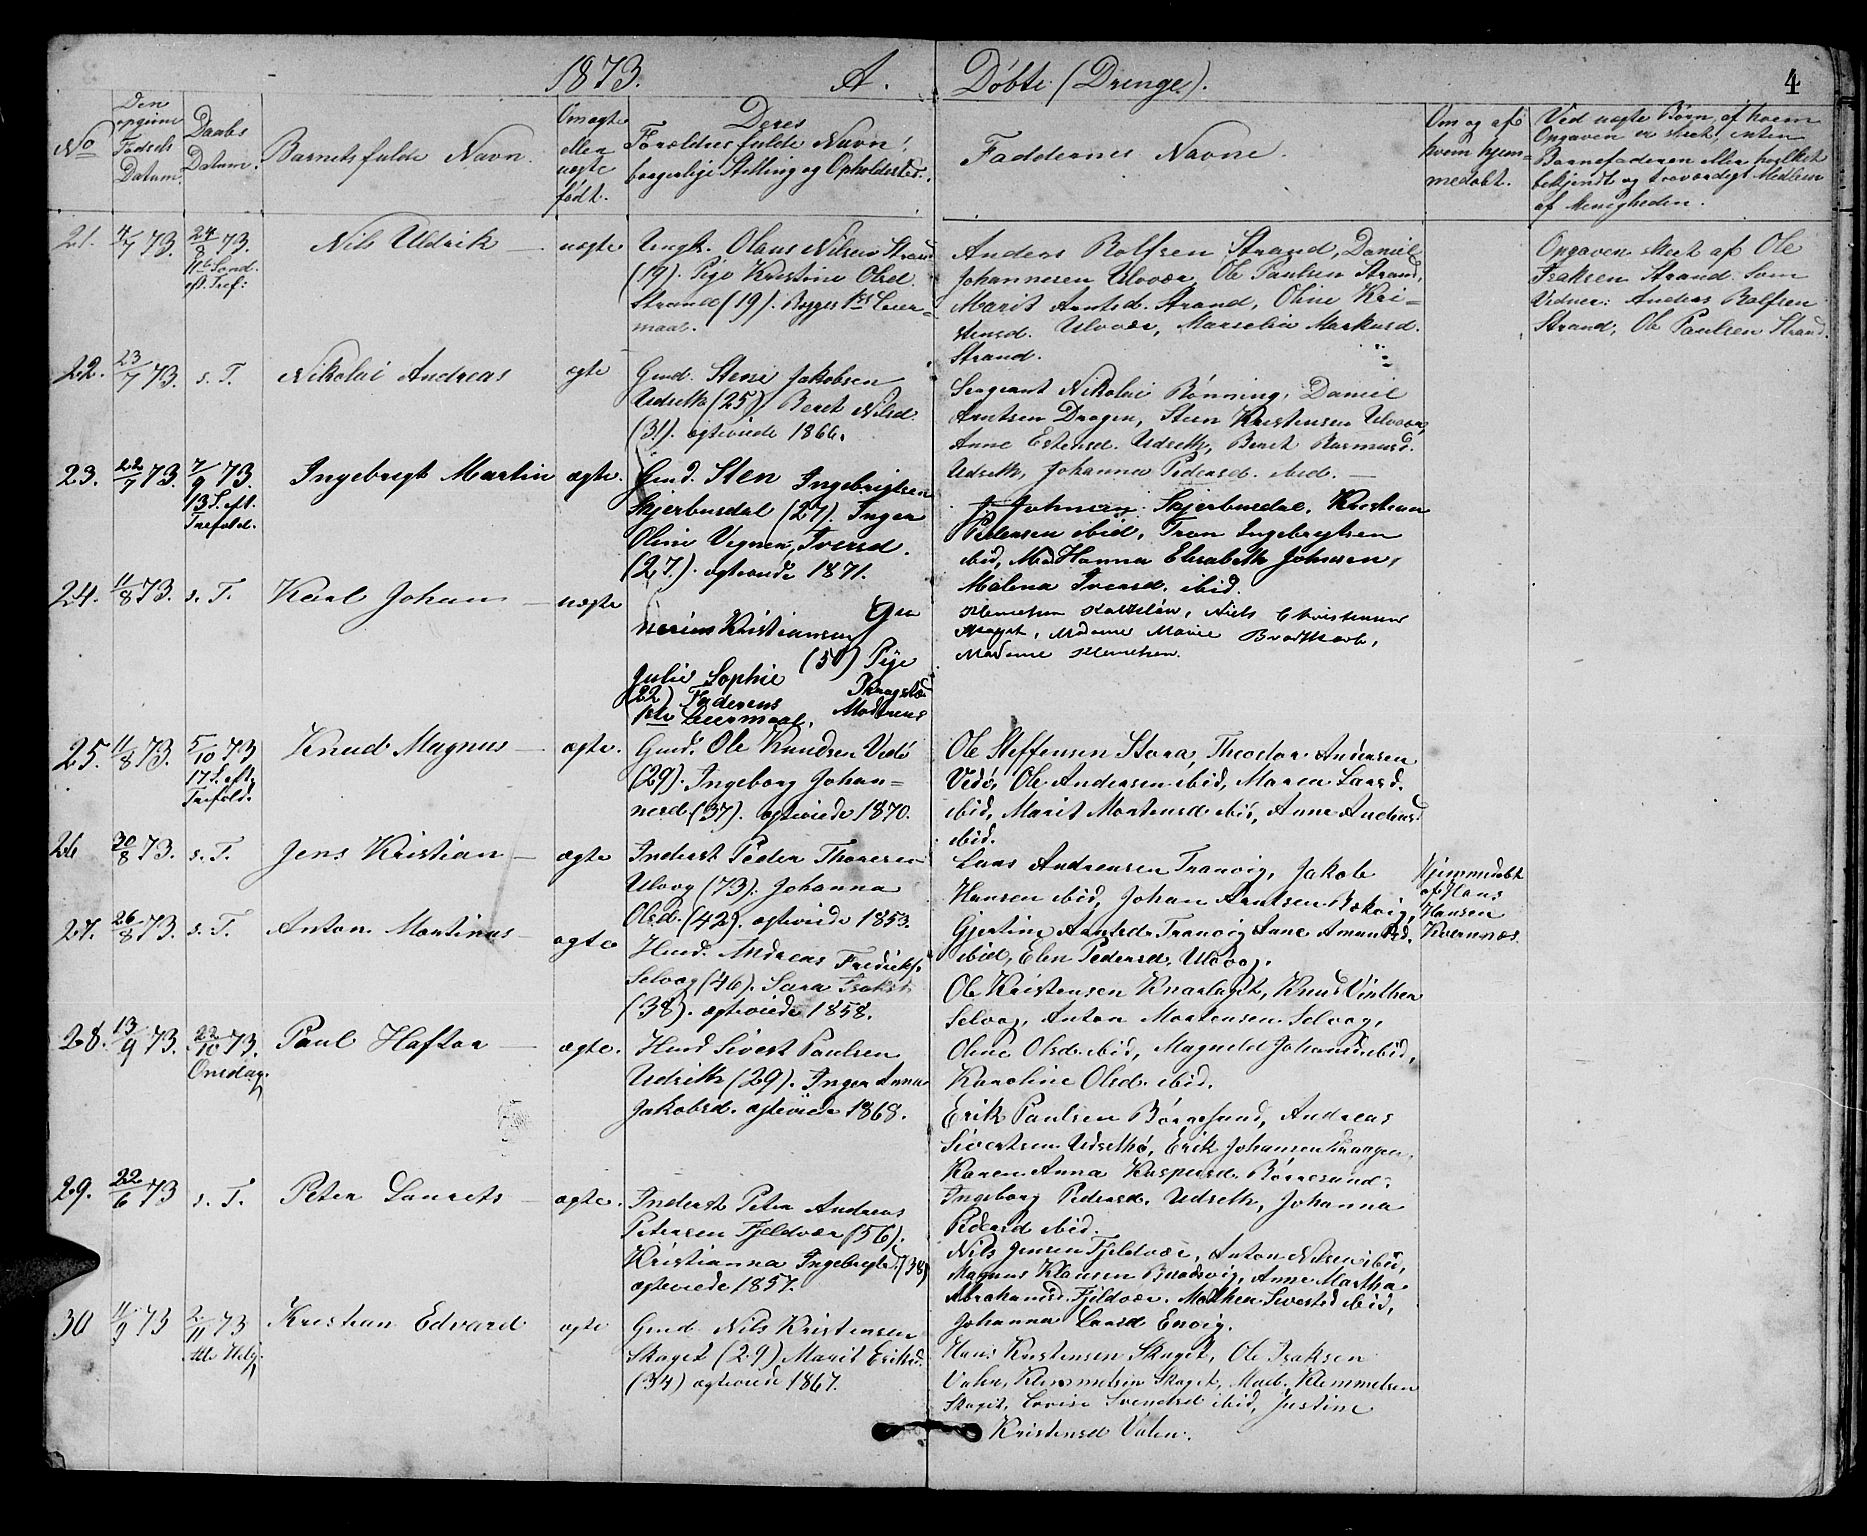 1873. A. Døbte (Drenge). 4
No
Den opgivne Fødsels Datum.
Daabs Datum.
Barnets fulde Navn.
Om ægte eller uægte født.
Deres Forældres fulde Navn, borgerlige Stilling og Opholdssted.
Faddernes Navne.
Om og af hvem hjemmedøbt.
Ved uægte Børn, af hvem Opgaven er skeet, enten Barnefaderen eller hvilket bekjendt og troværdigt Medlem af Menigheden.
21. 4/7 73. 24/8 73. Nils Uldrik uægte
11te Sønd. eft. Tref:
Ungk. Olaus Nilsen Strand
(19). Pige Kristine Olsd.
Strand (19). Begges 1ste Leier=
maal.
Anders Rolfsen Strand, Daniel
Johannesen Ulvær, Ole Paulsen Strand,
Marit Arntsd. Strand, Oline Kri=
stensd. Ulvær, Marselia Markusd.
Strand.
Opgaven skeet af Ole
Isaksen Strand som
Vidner: Anders Rolfsen
Strand, Ole Paulsen Strand.
22. 23/7 73. s. T. Nikolai Andreas ægte
Gmd. Sten Jakobsen
Udseth (25). Beret Nilsd.
(31). ægteviede 1866.
Sergeant Nikolai Rønning, Daniel
Arntsen Dragen, Steen Kristensen Ulvær,
Anne Estensd. Udseth, Beret Rasmusd.
Udseth, Johanna Pedersd. ibid.
23. 22/7 73. 7/9 73. Ingebrigt Martin ægte.
13 S. eft. Trefold.
Gmd. Sten Ingebrigtsen
Skjerbusdal (27). Inger
Oline Iversd.
(27). ægteviede 1871.
Skjerbusdal, Kristian
Pedersen ibid, Tron Ingebrigtsen
ibid, Hanna Elisabeth Johnsen,
Malena Iversd. ibid.
24. 11/8 73. s. T. Karl Johan uægte
Kristiansen
(50) Pige
Julie Sophie
(22) Faderens Moderens
1ste Leiermaal.
Niels Christensen
Skaget, Madame Marie
Madame Klemetsen.
25. 11/8 73. 5/10 73 Knud Magnus ægte.
17 S. eft. Trefold.
Gmd. Ole Knudsen Vedø
(29). Ingeborg Johan=
nesd. (37). ægteviede 1870.
Ole Steffensen Storø, Theodor Andersen
Vedø, Ole Andersen ibid, Maren Larsd.
ibid, Marit Mortensd ibid, Anne Andersd
ibid.
26 30/8 73. s. T. Jens Kristian ægte
Inderst Peder Thoresen
Ulvog (73). Johanna
Olsd. (42). ægteviede 1853.
Lars Andreasen Tranvig, Jakob
Hansen ibid, Johan Arntsen Bækvig,
Gjertine Arntsd. Tranvig, Ane Amundsd.
ibid, Elen Pedersd. Ulvog.
Hjemmedøbt
af Hans
Hansen
Kvernnæs
27. 26/8 73. s. T. Anton Martinus ægte
Husd. Andreas Fredriks.
Selvog (46). Sara Isaksd
(38). ægteviede 1858.
Ole Kristensen Knarlaget, Knud Vinther
Selvog, Anton Mortensen Selvog,
Oline Olsd. ibid, Magnild Johansd. ibid,
Karoline Olsd. ibid.
28. 13/9 73. 22/10 73. Paul Haftor ægte.
Onsdag.
Husd Sivert Paulsen
Udseth (29). Inger Anna
Jakobsd. ægteviede 1868.
Erik Paulsen Børøsund, Andreas
Sivertsen Udseth, Erik Johansen Dragen,
Karen Anna Kaspersd. Børøsund,
Ingeborg Pedersd. Udseth, Johanna
Pedersd ibid.
29. 22/6 73 s. T. Peter Laurets ægte.
Inderst Peter Andreas
Petersen Fjeldvær (56).
Kristianna Ingebrigtsd. (38)
ægteviede 1857.
Nils Jensen Fjeldvær, Anton Nilsen ibid,
Magnus Klausen Bredvig, Anne Martha
Abrahamsd. Fjeldvær, Mathea Sivertsd ibid,
Johanna Larsd Envig.
30 11/9 73 2/11 73 Kristian Edvard ægte
Alle Helg.
Gmd. Nils Kristensen
Skaget (29) Marit Eriksd.
(34) ægteviede 1867.
Hans Kristensen Skaget, Ole Isaksen
Valen, Klemmetsen Skaget, Mad. Klemmetsen
Skaget, Lovise Svendsd ibid, Justine
Kristensd Valen.